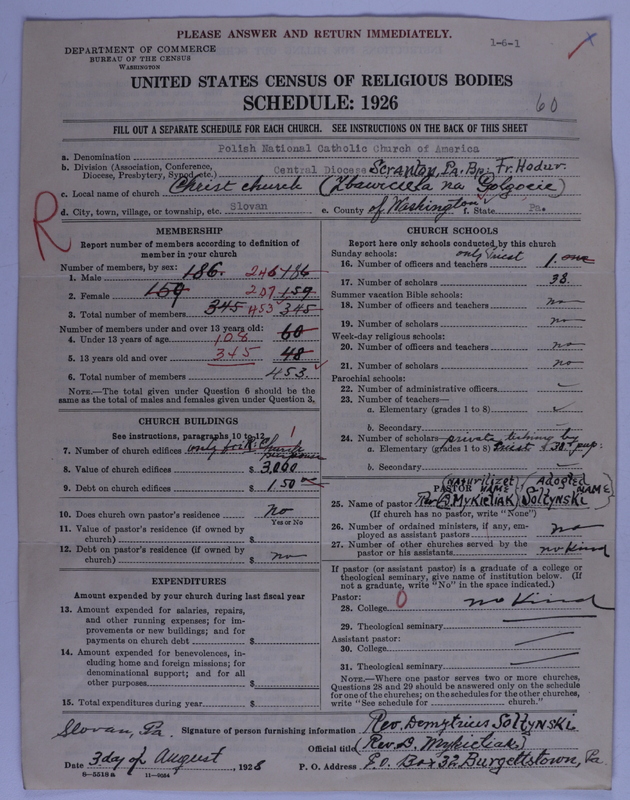 PLEASE ANSWER AND RETURN IMMEDIATELY.
1-6-1
DEPARTMENT OF COMMERCE
BUREAU OF THE CENSUS
WASHINGTON
UNITED STATES CENSUS OF RELIGIOUS BODIES
SCHEDULE: 1926
60
FILL OUT A SEPARATE SCHEDULE FOR EACH CHURCH. SEE INSTRUCTIONS ON THE BACK OF THIS SHEET
a. Denomination Polish National Catholic Church of America
b. Division (Association, Conference, Diocese, Presbytery, Synod, etc.) Central Diocese Scranton, Pa. Bp: Fr. Hodur.
c. Local name of church Christ church (Zbawiciela na Golgocie)
d. City, town, village, or township, etc. Slovan e. County of Washington f. State Pa.
R
MEMBERSHIP
Report number of members according to definition of
member in your church
Number of members, by sex:
1. Male 186 246 186
2. Female 159 207 159
3. Total number of members 345 453 345
Number of members under and over 13 years old:
4. Under 13 years of age 108 60
5. 13 years old and over 345 48
6. Total number of members 453
NOTE.—The total given under Question 6 should be the
same as the total of males and females given under Question 3.
CHURCH BUILDINGS
See instructions, paragraphs 10 to 12
7. Number of church edifices only for R. C. Church purpose 1
8. Value of church edifices $ 3,000
9. Debt on church edifices $ 150
10. Does church own pastor's residence? no
Yes or No
11. Value of pastor's residence (if owned by
church) $
12. Debt on pastor's residence (if owned by
church) $ no
EXPENDITURES
Amount expended by your church during last fiscal year
13. Amount expended for salaries, repairs,
and other running expenses; for im-
provements or new buildings; and for
payments on church debt $
14. Amount expended for benevolences, in-
cluding home and foreign missions; for
denominational support; and for all
other purposes $
15. Total expenditures during year $
CHURCH SCHOOLS
Report here only schools conducted by this church
Sunday schools: only Priest
16. Number of officers and teachers 1. one
17. Number of scholars 38.
Summer vacation Bible schools:
18. Number of officers and teachers no
19. Number of scholars no
Week-day religious schools:
20. Number of officers and teachers no
21. Number of scholars no
Parochial schools:
22. Number of administrative officers
23. Number of teachers—
a. Elementary (grades 1 to 8)
b. Secondary
24. Number of scholars— private by
a. Elementary (grades 1 to 8) Priest 38 pup:
b. Secondary
PASTOR NAME (Adopted NAME)
25. Name of pastor Rev. D. Mykietiak Soltynski
(If church has no pastor, write "None")
26. Number of ordained ministers, if any, em-
ployed as assistant pastors no
27. Number of other churches served by the
pastor or his assistants no kind
If pastor (or assistant pastor) is a graduate of a college or
theological seminary, give name of institution below. (If
not a graduate, write "No" in the space indicated.)
Pastor:
28. College 0 no kind
29. Theological seminary
Assistant pastor:
30. College
31. Theological seminary
NOTE.—Where one pastor serves two or more churches,
Questions 28 and 29 should be answered only on the schedule
for one of the churches; on the schedules for the other churches,
write "See schedule for church."
Slovan, Pa. Signature of person furnishing information Rev. Demytrius Soltynski
Official title (Rev. D. Mykietiak)
Date 3 day of August, 1928 P. O. Address P.O. Box 32 Burgettstown, Pa.
8-5518a 11-9064